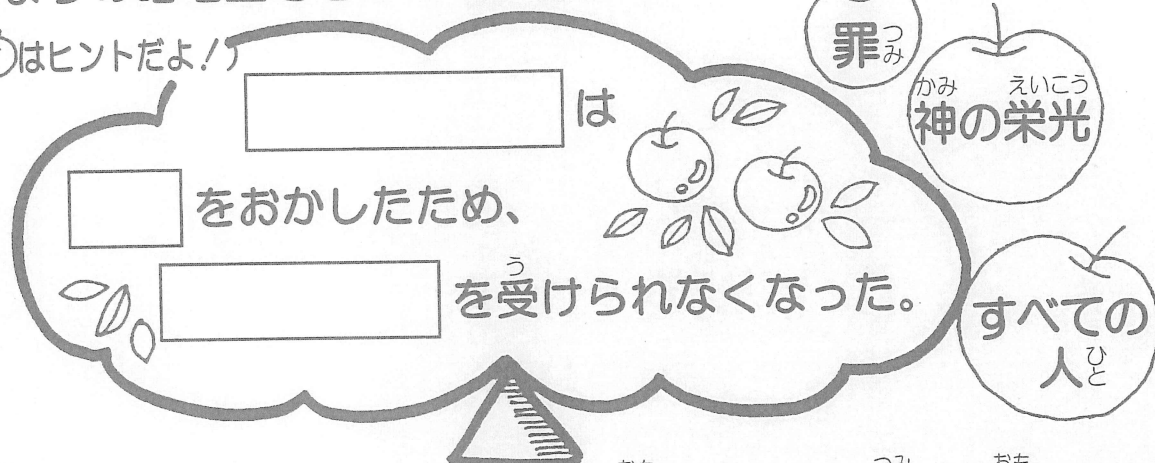 はヒントだよ！）
は
をおかしたため、
を受けられなくなった。
う
罪
つみ
神の栄光
かみ えいこう
すべての
人
ひと
つみ